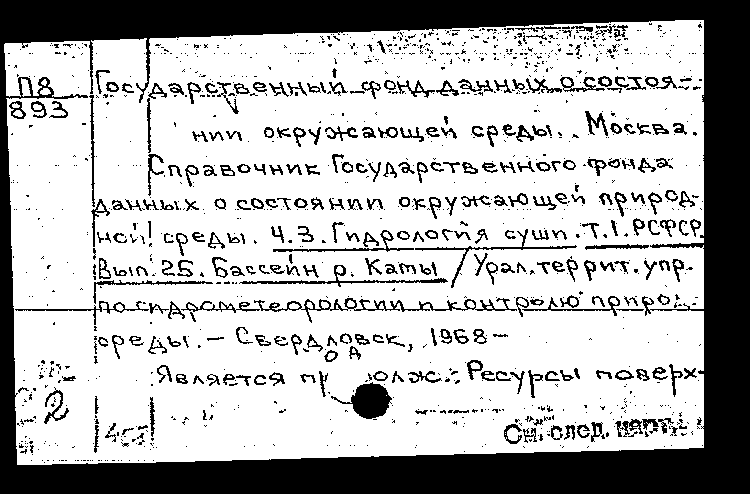 П8
893
Государственный фонд данных о состоя-
нии окружающей среды. Москва.
Справочник Государственного фонда
данных о состоянии окружающей природ-
ной среды. Ч.3. Гидрология суши. Т.1. РСФСР
Вып. 25. Бассейн р. Камы / Урал. террит. упр.
по гидрометеорологии и контролю природ.
среды. – Свердловск, 1968 –
Является продолж.: Ресурсы поверх-
2
См. след. карт.